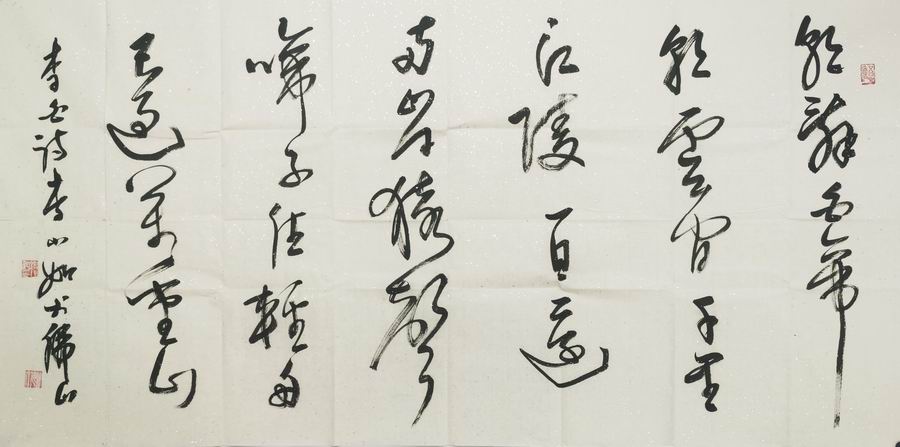 朝辭白帝
彩雲間千里
江陵一日還
兩岸猿聲
啼不住輕舟
已過萬重山
李白诗李小如佛山